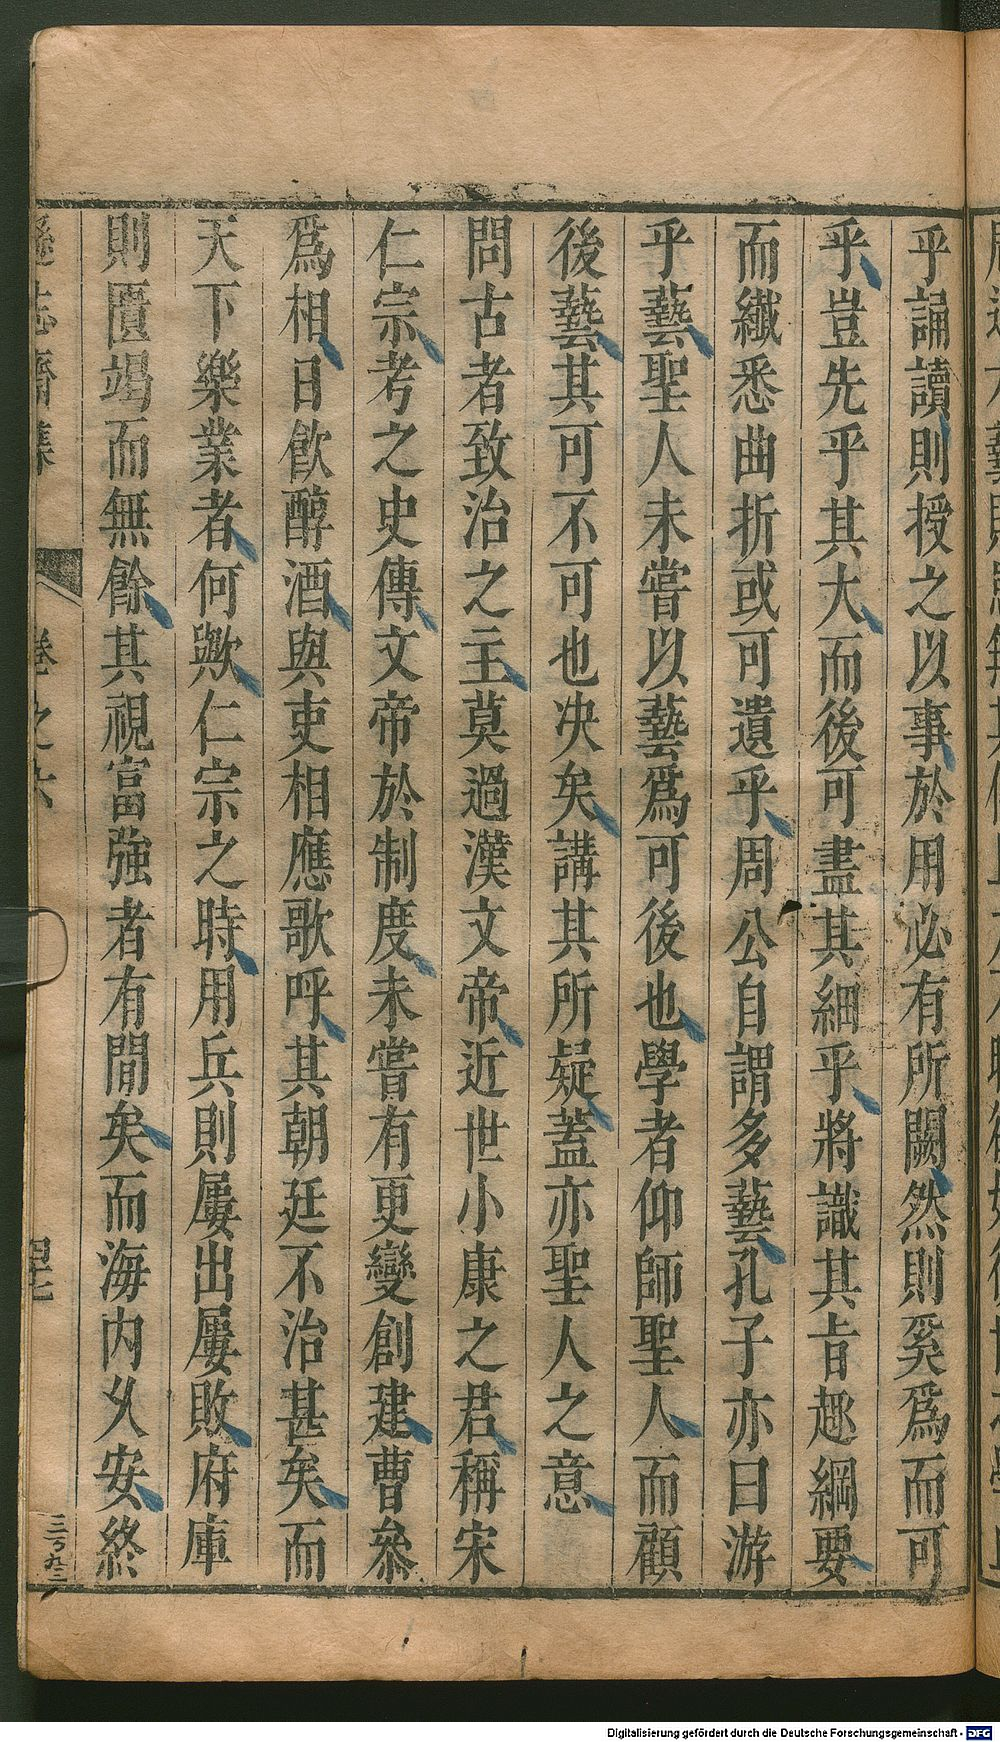 乎誦讀則授之以事於用必有所闕然則奚爲而可
乎豈先乎其大而後可盡其細乎將識其旨趣綱要
而纖悉曲折或可遺乎周公自謂多藝孔子亦曰游
乎藝聖人未嘗以藝爲可後也學者仰師聖人而顧
後藝其可不可也决矣講其所疑蓋亦聖人之意
問古者致治之主莫過漢文帝近世小康之君稱宋
仁宗考之史傳文帝於制度未嘗有更變創建曹參
爲相日飮醇酒與吏相應歌呼其朝廷不治甚矣而
天下樂業者何歟仁宗之時用兵則屢出屢敗府庫
則匱竭而無餘其視富強者有間矣而海内乂安終
遜志齋集
卷之六
四七
Digitalisierung gefördert durch die Deutsche Forschungsgemeinschaft - DFG